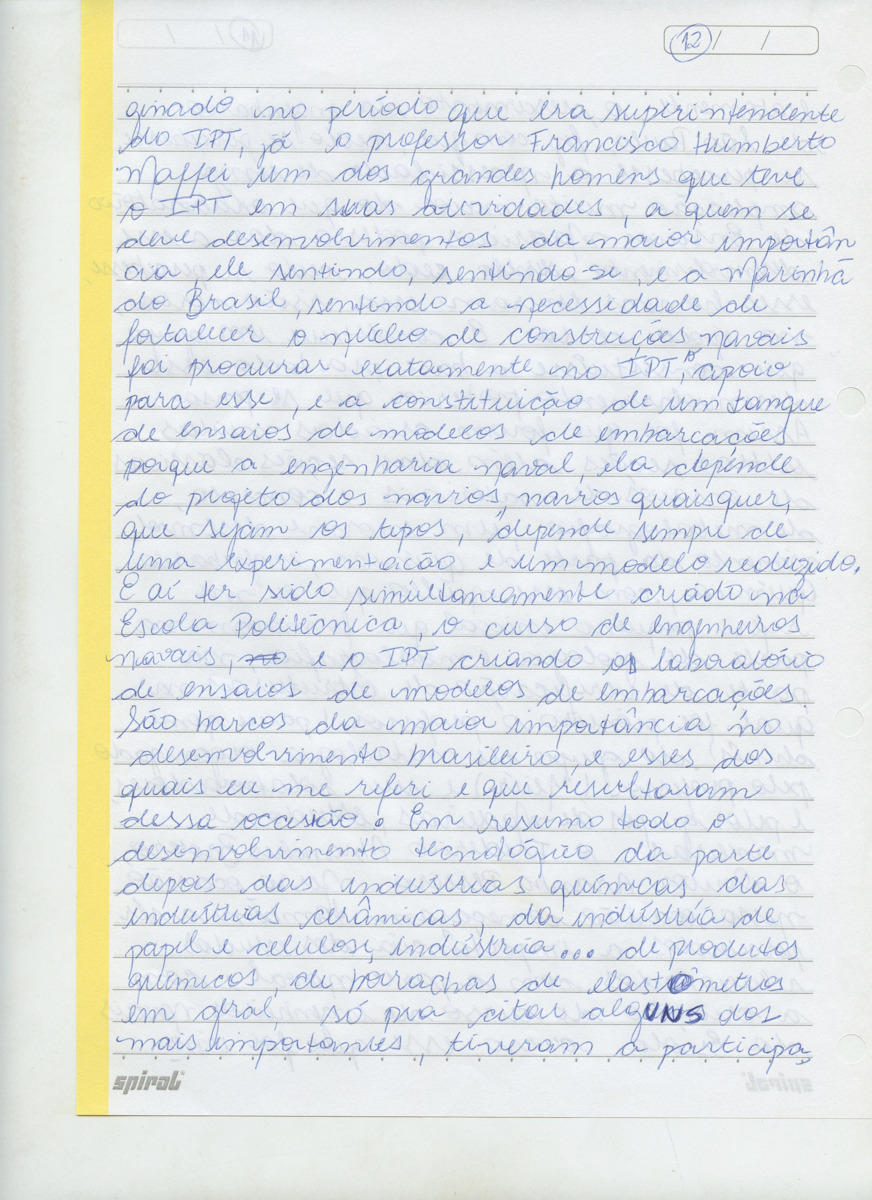 12 / /
ginado no período que era superintendente
do IPT, já o professor Francisco Humberto
Maffei um dos grandes homens que teve
o IPT em suas atividades, a quem se
deve desenvolvimentos da maior importân
cia, ele sentindo, sentindo-se, e a Marinha
do Brasil, sentindo a necessidade de
fortalecer o núcleo de construções navais
foi procurar exatamente no IPT, o apoio
para esse, e a constituição de um tanque
de ensaios de modelos de embarcações
porque a engenharia naval, ela depende
do projeto dos navios, navios quaisquer,
que sejam os tipos, depende sempre de
uma experimentação e um modelo reduzido.
E aí ter sido simultaneamente criado na
Escola Politécnica, o curso de engenheiros
navais, e o IPT criando o laboratório
de ensaios de modelos de embarcações.
São barcos da maia importância no
desenvolvimento brasileiro, e esses dos
quais eu me referi e que resultaram
dessa ocasião. Em resumo todo o
desenvolvimento tecnológico da parte
depois das indústrias químicas das
indústrias cerâmicas, da indústria de
papel e celulose, indústria... de produtos
químicos, de borrachas de elastômetros
em geral, só pra citar alguns dos
mais importantes, tiveram a participa
spiral